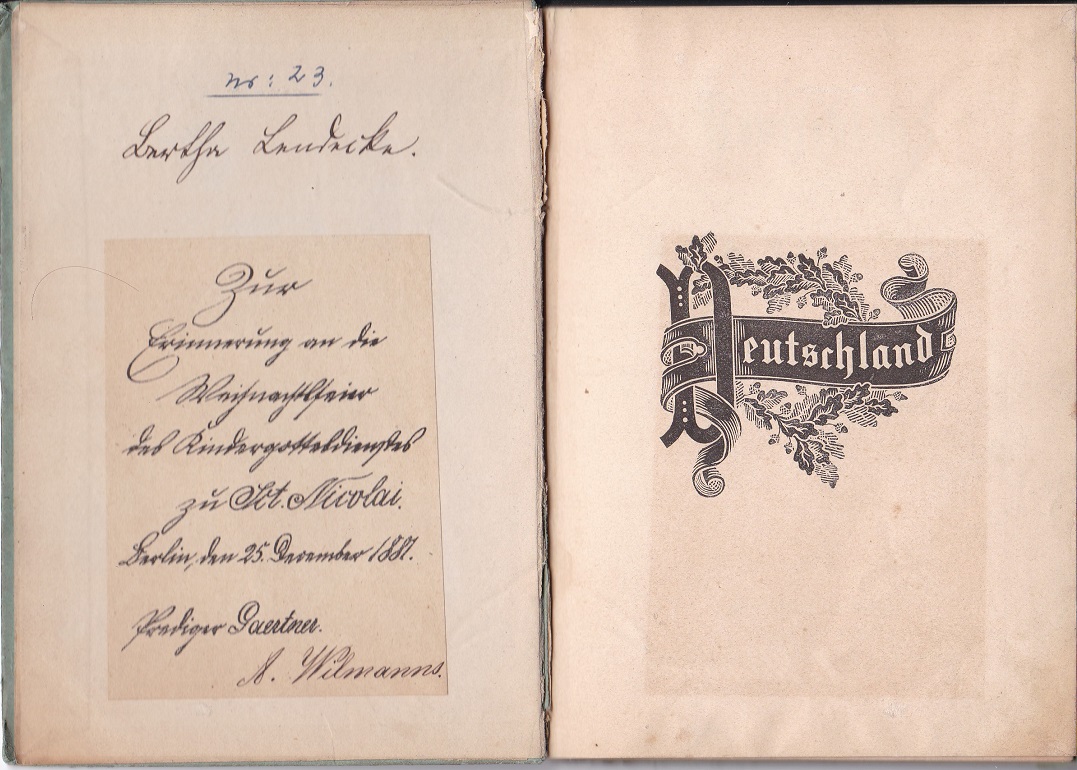 nr: 23.
Bertha Lendecke.
Zur
Erinnerung an die
Weihnachtsfeier
des Kindergottesdienstes
zu Sct. Nicolai.
Berlin, den 25. December 1887.
Prediger Gaertner.
A. Wilmanns.
Deutschland